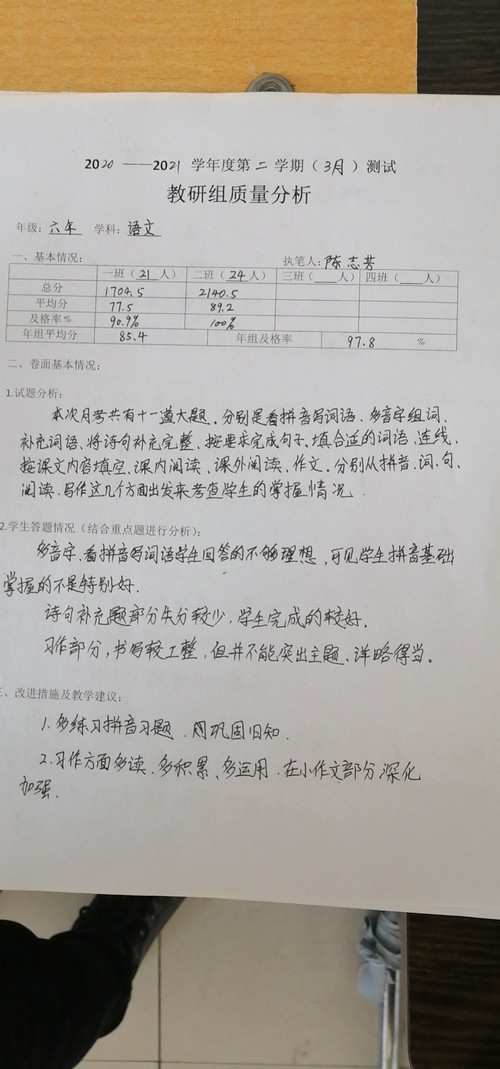 2020 ——2021 学年度第二学期（3月）测试
教研组质量分析
年级：六年 学科：语文
一、基本情况： 执笔人：陈志芳
一班（21人） 二班（24人） 三班（____人） 四班（____人）
总分 1704.5 2140.5
平均分 77.5 89.2
及格率% 90.9% 100%
年组平均分 85.4 年组及格率 97.8 %
二、卷面基本情况：
1.试题分析：
本次月考共有十一道大题。分别是看拼音写词语、多音字组词、
补充词语、将诗句补充完整、按要求完成句子、填合适的词语、连线、
按课文内容填空、课内阅读、课外阅读、作文。分别从拼音、词、句、
阅读、写作这几个方面出发来考查学生的掌握情况。
2.学生答题情况（结合重点题进行分析）：
多音字、看拼音写词语学生回答的不够理想，可见学生拼音基础
掌握的不是特别好。
诗句补充题部分失分较少，学生完成的较好。
习作部分，书写较工整，但并不能突出主题、详略得当。
三、改进措施及教学建议：
1.多练习拼音习题、巩固旧知.
2.习作方面多读、多积累、多运用.在小作文部分深化
加强.